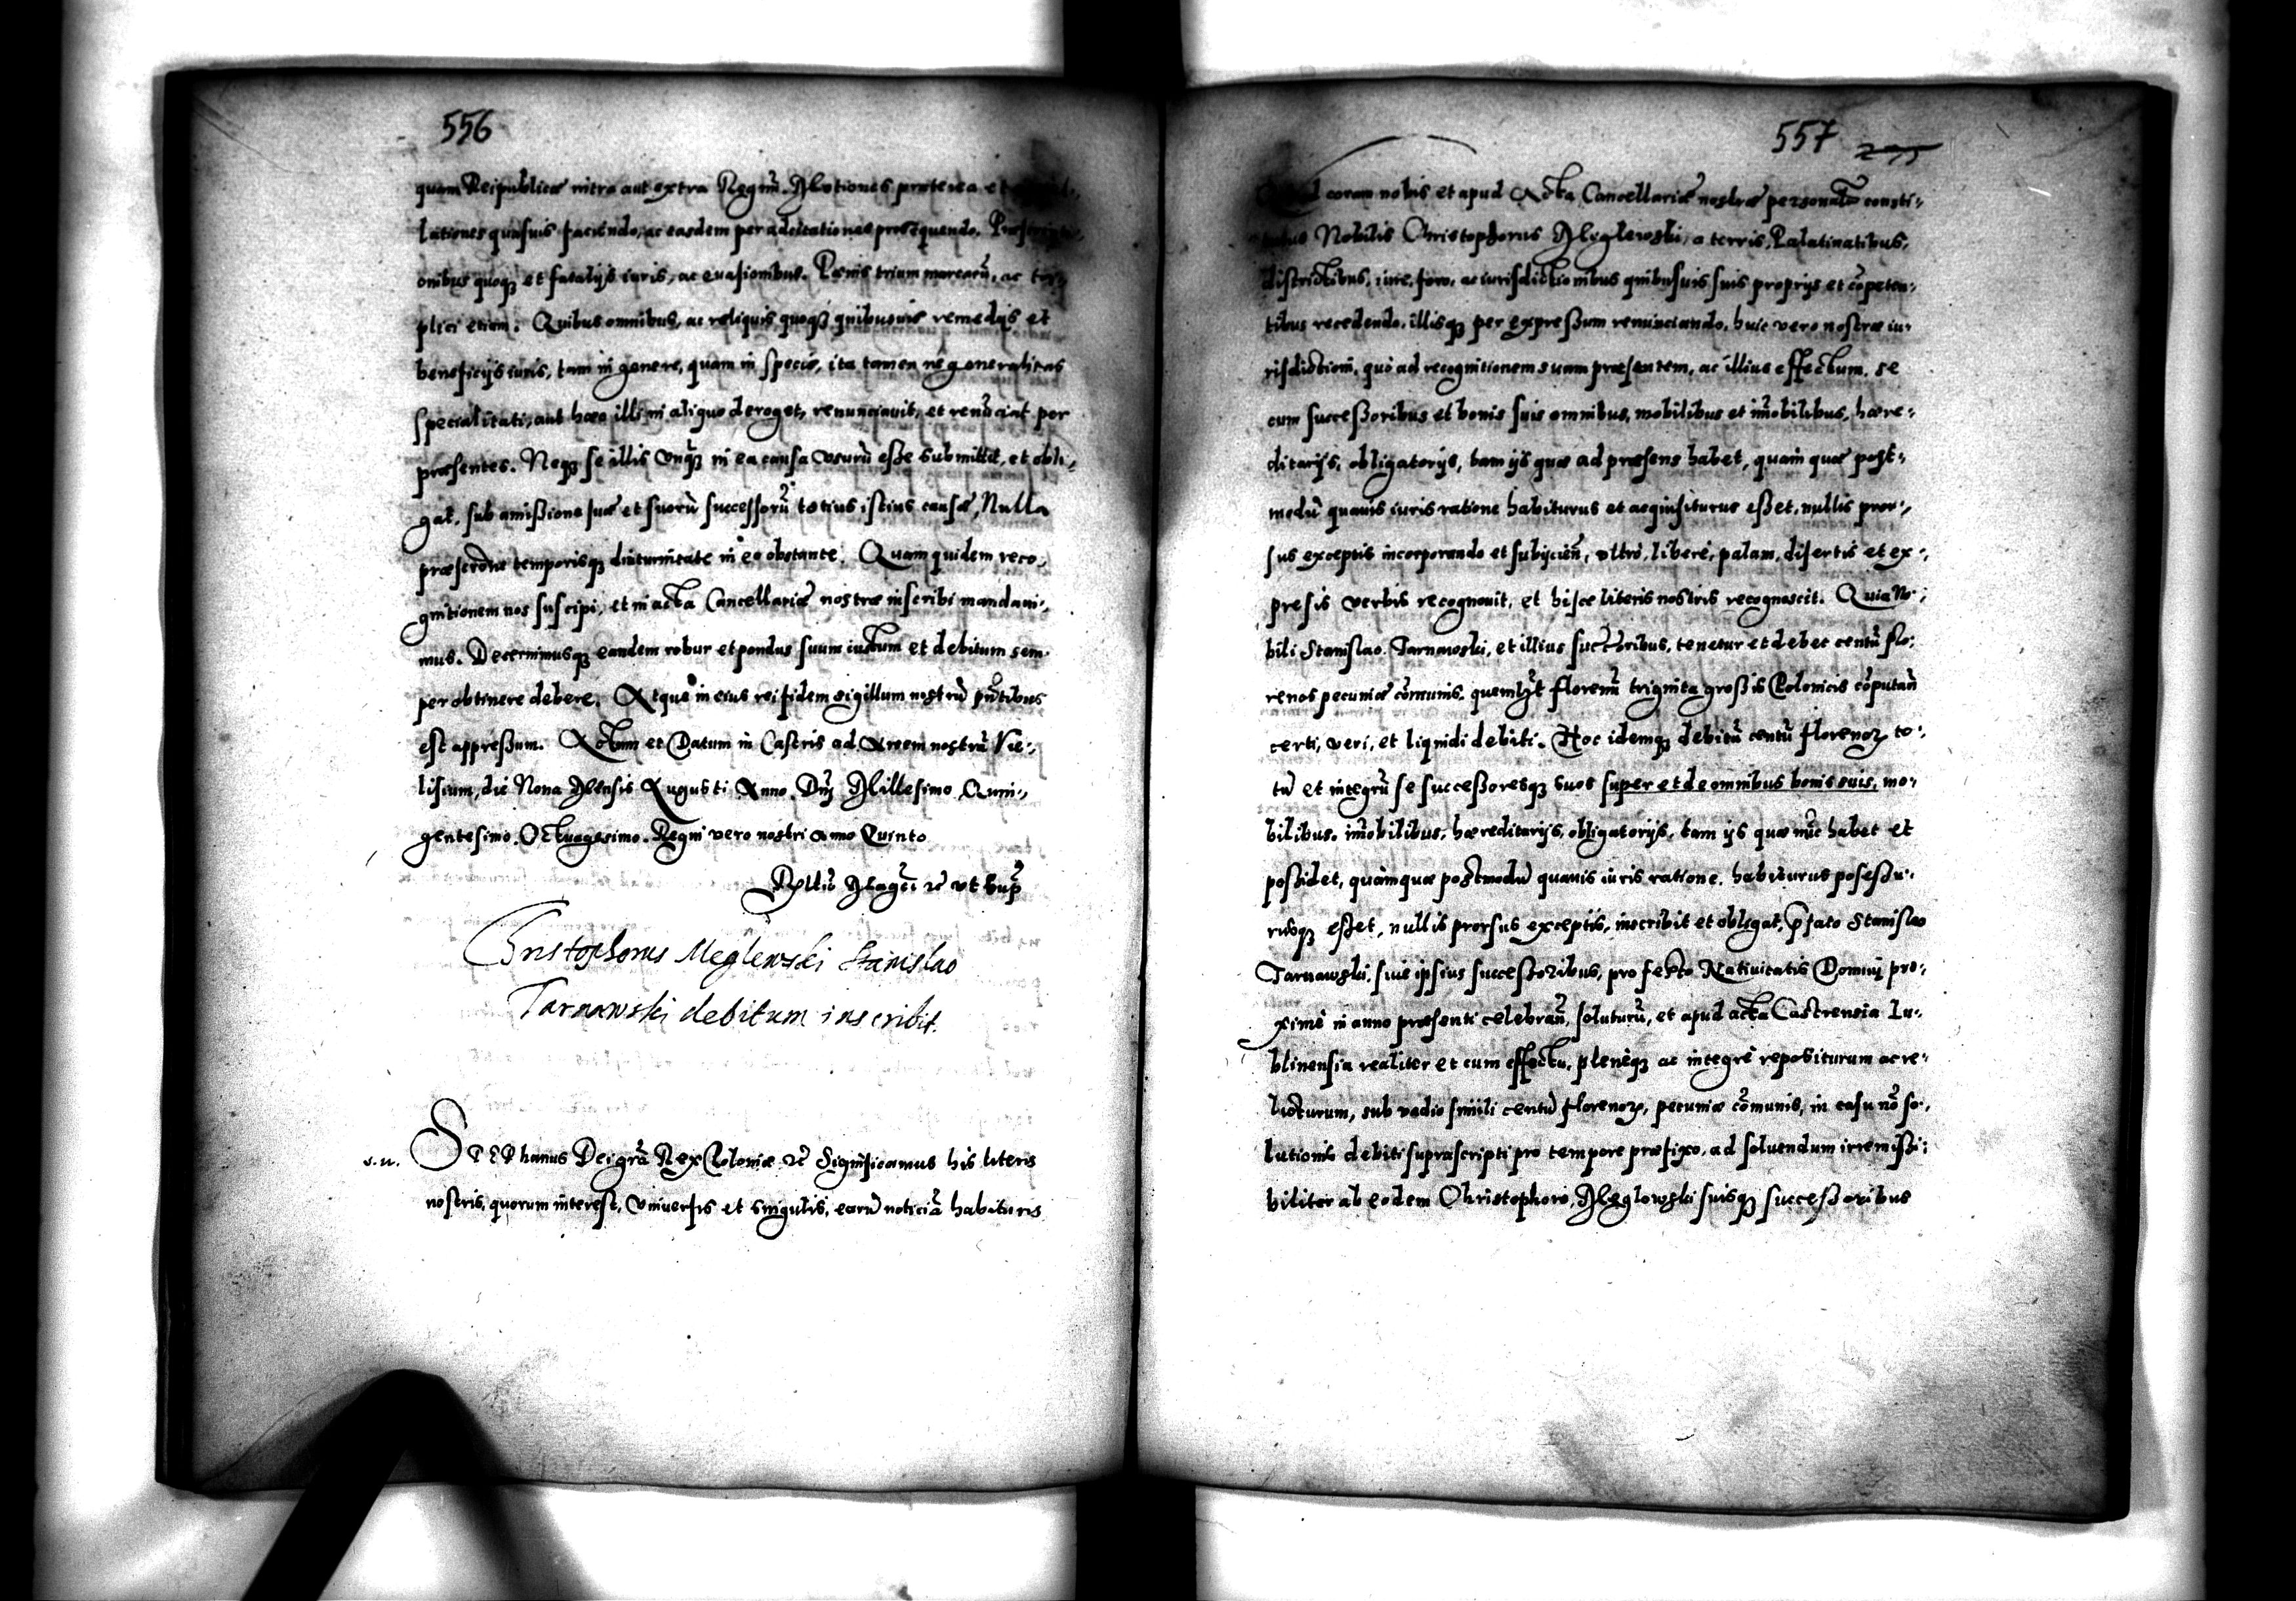 556
quam Reipublicæ intra aut extra Regnū. Motiones præterea et
lationes quasuis faciendo, ac easdem per adcitationes prosequendo.
onibus quoqȝ et fatalijs iuris, ac euasionibus. Pœnis trium marcarū, ac
plici etiam. Quibus omnibus, ac reliquis quoqȝ quibusuis remedijs et
beneficijs iuris, tam in genere, quam in specie, ita tamen ne generalitas
specialitati, aut hæc illi in aliquo deroget, renunciauit, et renūciat per
præsentes. Neqȝ se illis vnqȝ in ea causa vsurū esse submittit, et obli,
gat, sub amißione suæ et suorū successorū totius istius causæ, Nulla
præscrōne temporisqȝ diuturnitate in eo obstante. Quam quidem reco,
gnitionem nos suscipi, et in acta Cancellariæ nostræ inscribi mandaui,
mus. Decernimusqȝ eandem robur et pondus suum iustum et debitum sem
per obtinere debere. Atque in eius rei fidem sigillum nostrū pn̄tibus
est appreßum. Actum et Datum in Castris ad Arcem nostrā Vie,
lisium, die Nona Mensis Augusti Anno Dnj Millesimo Quin,
gentesimo Octuagesimo. Regni vero nostri anno Quinto
Rellō Magci rē vt sup
Christophorus Meglewski Stanislao
Tarnawski debitum inscribit.
s.n. Stephanus Dei grā Rex Poloniæ rē Significamus his literis
nostris, quorum interest, vniuersis et singulis, earū noticiā habituris
557
coram nobis et apud Acta Cancellariæ nostræ personalr consti,
Nobilis Christophorus Meglewski, a terris, Palatinatibus,
districtibus, iure, foro, ac iurisdictionibus quibusuis suis proprijs et cōpeten,
tibus recedendo, illisqȝ per expreßum renunciando, huic vero nostræ iu,
risdictioni, quò ad recognitionem suam præsentem, ac illius effectum, se
cum succeßoribus et bonis suis omnibus, mobilibus et im̄obilibus, hære,
ditarijs, obligatorijs, tam ijs quæ ad præsens habet, quàm quæ post,
modū quauis iuris ratione habiturus et acquisiturus eßet, nullis pror,
sus exceptis incorporando et subijcien̄, vltrò, liberè, palam, disertis et ex,
presis verbis recognouit, et hisce literis nostris recognoscit. Quia No,
bili Stanislao Tarnawski, et illius succ̄oribus, tenetur et debet centū flo,
renos pecuniæ cōmunis, quemlȝt florenū triginta großis Polonicis cōputan̄
certi, veri, et liquidi debiti. Hoc idemqȝ debitū centū florenoȝ to,
tū et integrū se succeßoresqȝ suos super et de omnibus bonis suis, mo,
bilibus, im̄obilibus, hæreditarijs, obligatorijs, tam ijs quæ nūc habet et
poßidet, quàm quæ postmodū quauis iuris ratione, habiturus poseßu,
rusqȝ eßet, nullis prorsus exceptis, inscribit et obligat, p̄fato Stanislao
Tarnawski, siue ipsius succeßoribus, pro festo Natiuitatis Dominj pro,
ximè in anno præsenti celebran̄, soluturū, et apud acta Castrensia Lu,
blinensia realiter et cum effectu, plenèqȝ ac integrè repositurum ac re,
licturum, sub vadio simili centū florenoȝ, pecuniæ cōmunis, in casu nō so,
lutionis debiti suprascripti pro tempore præfixo, ad soluendum irremißi,
biliter ab eodem Christophoro Meglowski suisqȝ succeßoribus